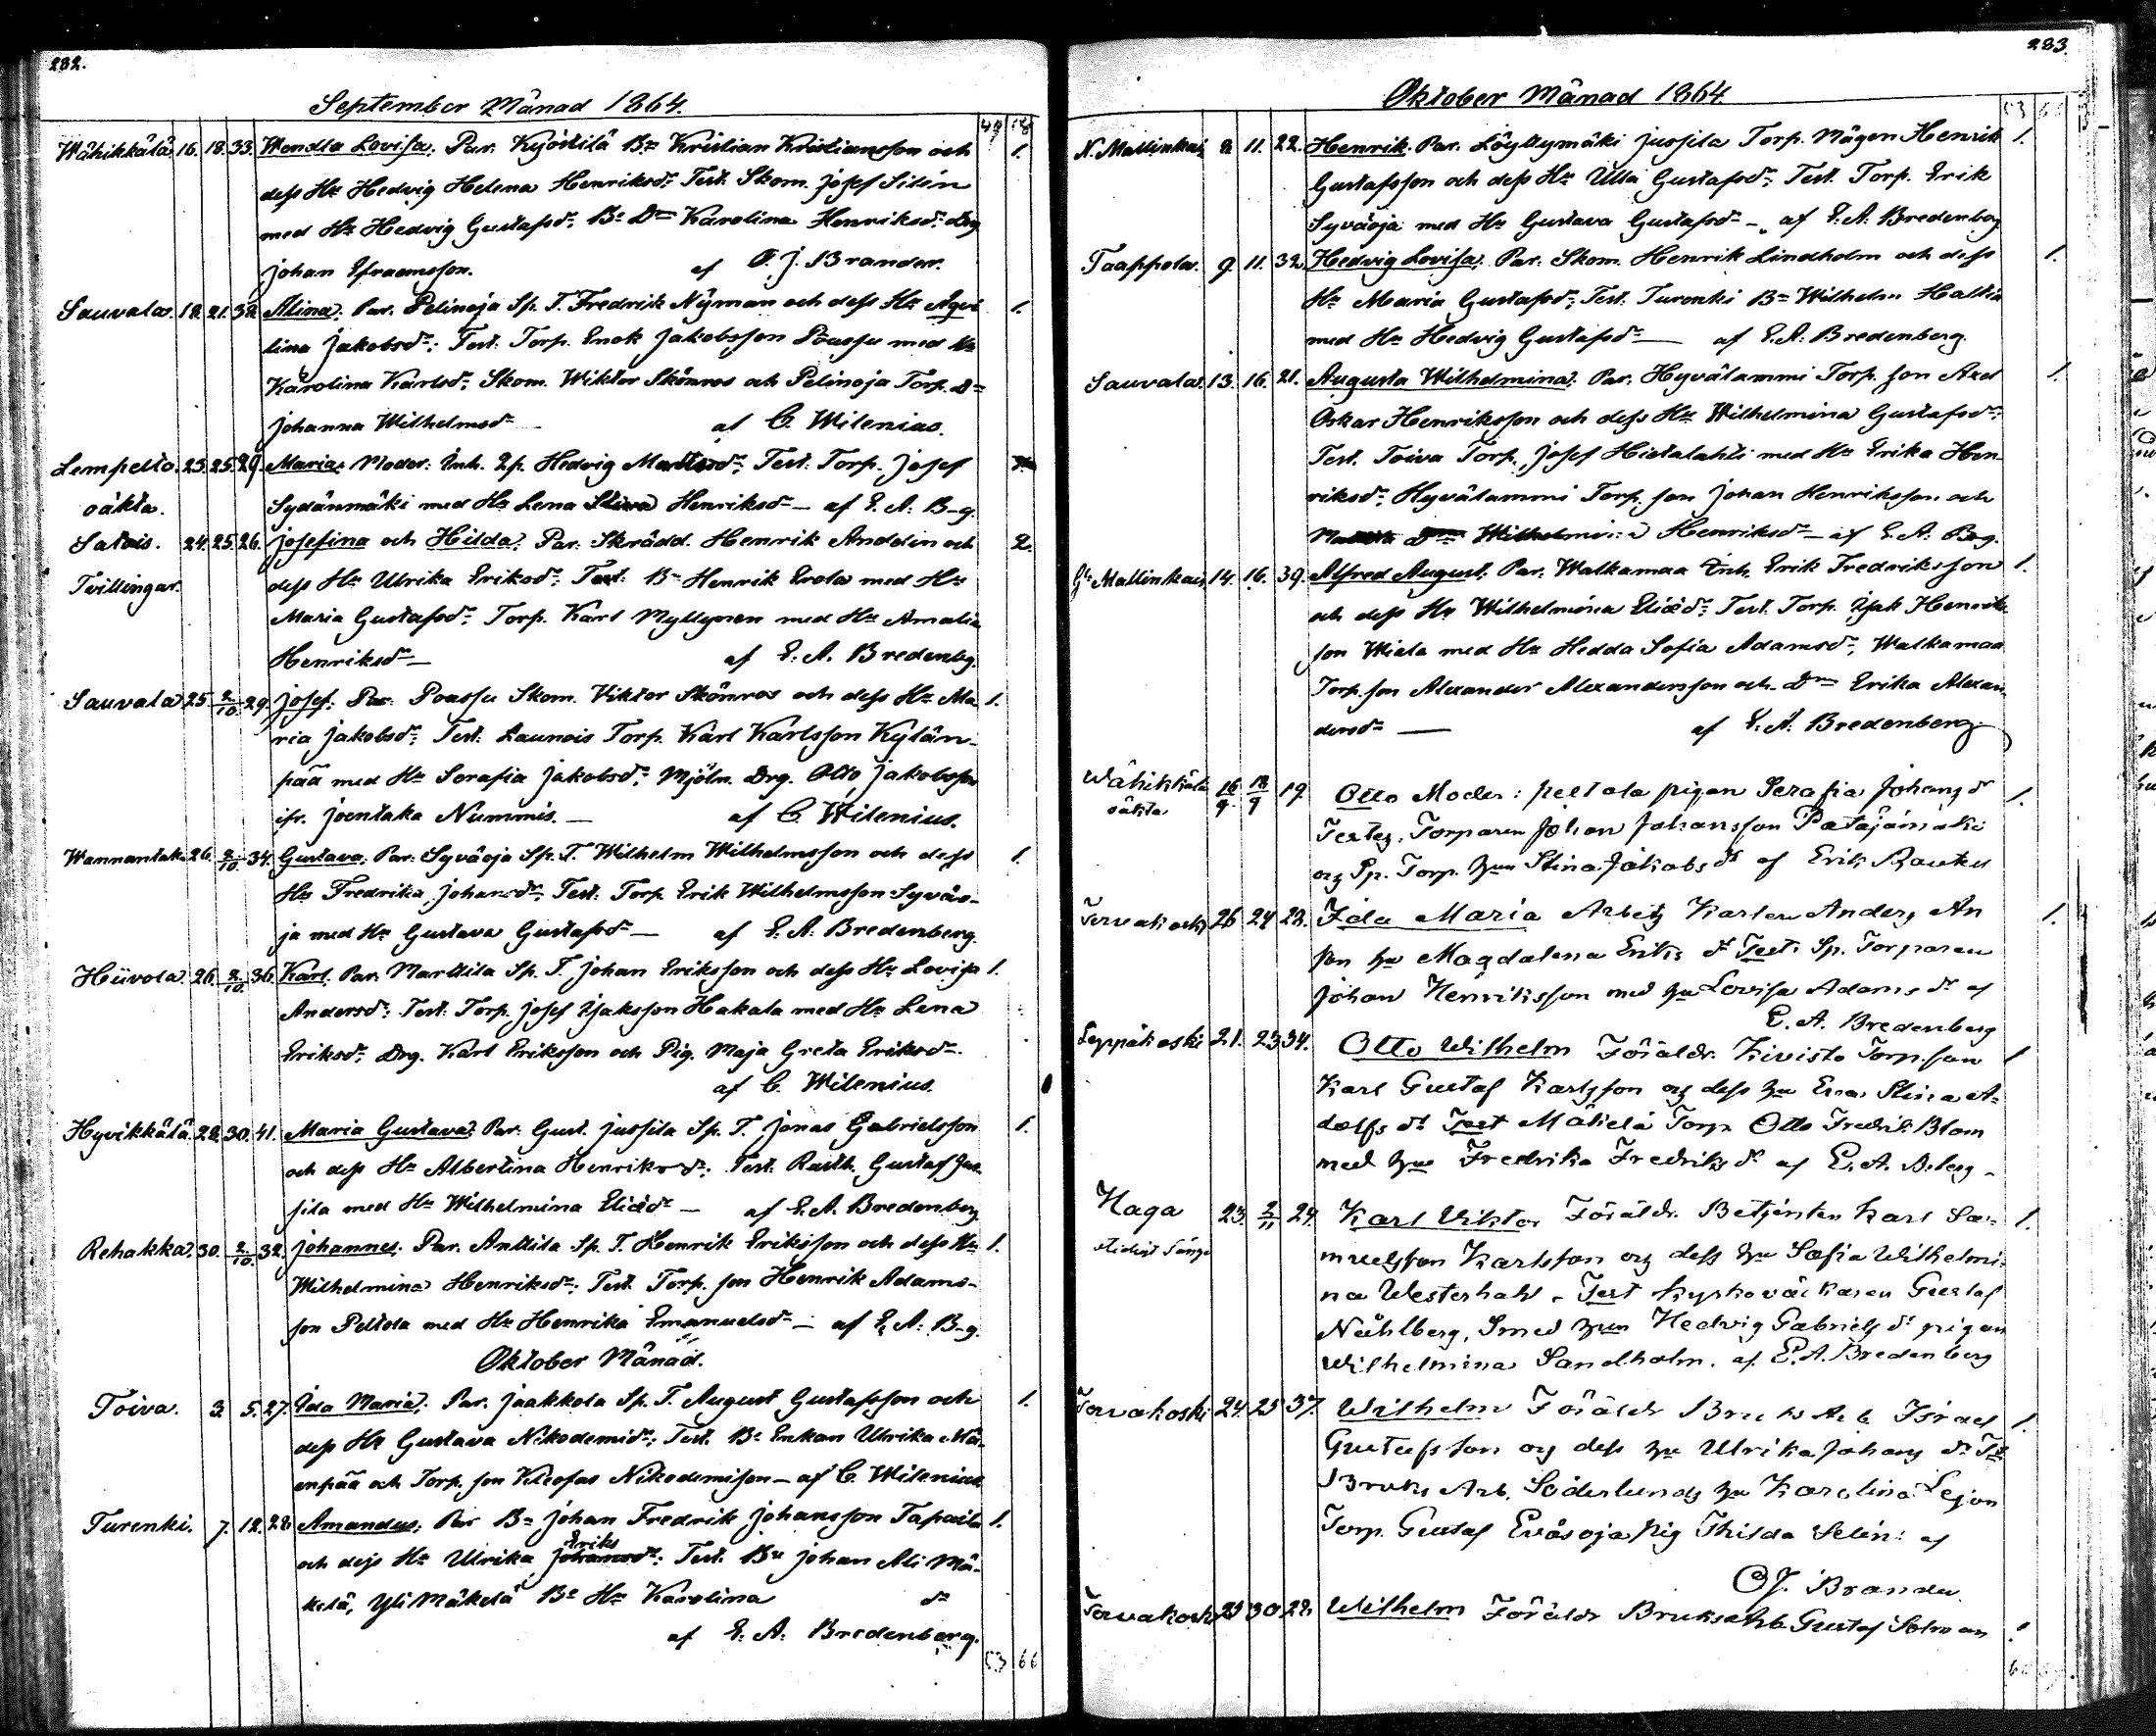 282.
September Månad 1864.
49 58
Wähikkälä. 16. 18. 33. Wendla Lovisa. Par. Kyöstilä Bn Kristian Kristiansson och 1.
dess Hu Hedvig Helena Henriksdr Test. Skom. Josef Silén
med Hu Hedvig Gustafsdr, Bn Dn Karolina Henriksdr Drg
Johan Efraemsson. af O. J. Brander.
Sauvala. 18. 21. 38. Alina. Par. Pelinoja Sp. T. Fredrik Nyman och dess Hu Aqvi 1.
lina Jakobsdr; Test. Torp. Enok Jakobsson Poussu med Hu
Karolina Karlsdr, Skom. Wiktor Skönros och Pelinoja Torp. Dn
Johanna Wilhelmsdr af C. Wilenius.
Lempelto. 23. 25. 29. Maria. Moder: Inh. Hedvig Mattsdr, Test. Torp. Josef
oäkta. Sydänmäki med Hu Lena Stina Henriksdr — af E. A. B-g.
Satois. 24. 25. 26. Josefina och Hilda. Par. Skrädd. Henrik Anddin och 2.
Tvillingar. dess Hu Ulrika Eriksdr, Test. Bn Henrik Erola med Hu
Maria Gustafsdr, Torp. Karl Myllynen med Hu Amalia
Henriksdr — af E. A. Bredenbg.
Sauvala 25. 2/10. 29. Josef. Par. Poussu Skom. Viktor Skönros och dess Hu Ma 1.
ria Jakobsdr, Test. Launois Torp. Karl Karlsson Kylän-
pää med Hu Serafia Jakobsdr, Mjöln. Drg. Otto Jakobsson
ifr. Joentaka Nummis. — af C. Wilenius.
Wannantaka 26. 2/10. 34. Gustava. Par. Syväoja Sp. T. Wilhelm Wilhelmsson och dess 1.
Hu Fredrika Johansdr, Test. Torp. Erik Wilhelmsson Syväo-
ja med Hu Gustava Gustafsdr — af E. A. Bredenberg.
Hiivola. 26. 2/10. 36. Karl. Par. Marttila Sp. T. Johan Eriksson och dess Hu Lovisa 1.
Andersdr, Test. Torp. Josef Isaksson Hakala med Hu Lena
Eriksdr, Drg. Karl Eriksson och Pig. Maja Greta Eriksdr.
af C. Wilenius.
Hyvikkälä. 28. 30. 41. Maria Gustava. Par. Gust. Jussila Sp. T. Jonas Gabrielsson 1.
och dess Hu Albertina Henriksdr, Test. Rusth. Gustaf Jus-
sila med Hu Wilhelmina Eliædr — af E. A. Bredenberg
Rehakka. 30. 2/10. 32. Johannes. Par. Anttila Sp. T. Henrik Eriksson och dess Hu 1.
Wilhelmina Henriksdr, Test. Torp. son Henrik Adams-
son Peltola med Hu Henrika Emanuelsdr — af E. A. B-g.
Oktober Månad.
Toiva. 3. 5. 27. Ida Maria. Par. Jaakkola Sp. T. August Gustafsson och 1.
dess Hu Gustava Nikodemidr, Test. Bn Enkan Ulrika Mä-
enpää och Torp. son Kleofas Nikodemison — af C. Wilenius.
Turenki. 7. 12. 28. Amandus. Par. Bn Johan Fredrik Johansson Tapaila 1.
Eriks
och dess Hu Ulrika Johansdr, Test. Bn Johan Ali Mä-
kelä, Yli Mäkelä Bn Hu Karolina dr
af E. A. Bredenberg.
53 66
283.
Oktober Månad 1864.
53 66
N. Mallinkais 8. 11. 22. Henrik. Par. Löyllymäki Jussila Torp. Mågen Henrik 1.
Gustafsson och dess Hu Ulla Gustafsdr, Test. Torp. Erik
Syväoja med Hu Gustava Gustafsdr — af E. A. Bredenberg
Taappola. 9. 11. 32. Hedvig Lovisa. Par. Skom. Henrik Lindholm och dess 1.
Hu Maria Gustafsdr, Test. Turenki Bn Wilhelm Hattia
med Hu Hedvig Gustafsdr — af E. A. Bredenberg.
Sauvala. 13. 16. 21. Augusta Wilhelmina. Par. Hyvälammi Torp. son Axel 1.
Oskar Henriksson och dess Hu Wilhelmina Gustafsdr,
Test. Toiva Torp. Josef Hietalahti med Hu Erika Hen-
riksdr, Hyvälammi Torp. son Johan Henriksson och
Dn Wilhelmina Henriksdr — af E. A. Bg.
Gl. Mallinkais 14. 16. 39. Alfred August. Par. Walkamaa Inh. Erik Fredriksson 1.
och dess Hu Wilhelmina Eliædr, Test. Torp. Isak Henriks-
son Wiala med Hu Hedda Sofia Adamsdr, Walkamaa
Torp. son Alexander Alexandersson och Dn Erika Alexan
dersdr — af E. A. Bredenberg.
Wähikkälä 16/9. 18/9 19. Otto Moder: Peltola pigan Serafia Johansdr 1.
oäkta Testes. Torparen Johan Johansson Patajämäki
og Sp. Torp. hun Stina Jakobsdr af Erik Rautell
Tervakoski 26 24 22. Ida Maria Arbetz Karlen Anders An 1.
son hu Magdalena Eriksdr Test. Sp. Torparen
Johan Henriksson med hu Lovisa Adamsdr af
E. A. Bredenberg
Leppäkoski 21. 23 34. Otto Wilhelm Föräldr. Kivisto Torp. son 1
Karl Gustaf Karlsson og dess hu Eva Stina A-
dolfsdr Test Mäkelä Torp. Otto Fredrik Blom
med hu Fredrika Fredriksdr af E. A. B.berg -
Haga 23. 2/11 24. Karl Viktor Föräldr. Betjenten Karl Sa- 1.
muelsson Karlsson og dess hu Sofia Wilhelmi-
na Westerhahl. Test Kyrkoväktaren Gustaf
Nählberg, Smed hun Hedvig Gabrielsdr pigan
Wilhelmina Sandholm. af E. A. Bredenberg
Tervakoski 24. 25 37. Wilhelm Föräldr Bruks Arb. Israel 1.
Gustafsson og dess hu Ulrika Johansdr Tt
Bruks Arb. Söderlunds hu Karolina Lejon
Torp. Gustaf Eväsoja Pig Thilda Selin: af
O J. Brander.
Tervakoski 25 30 28. Wilhelm Föräldr Bruksarb. Gustaf Solman 1